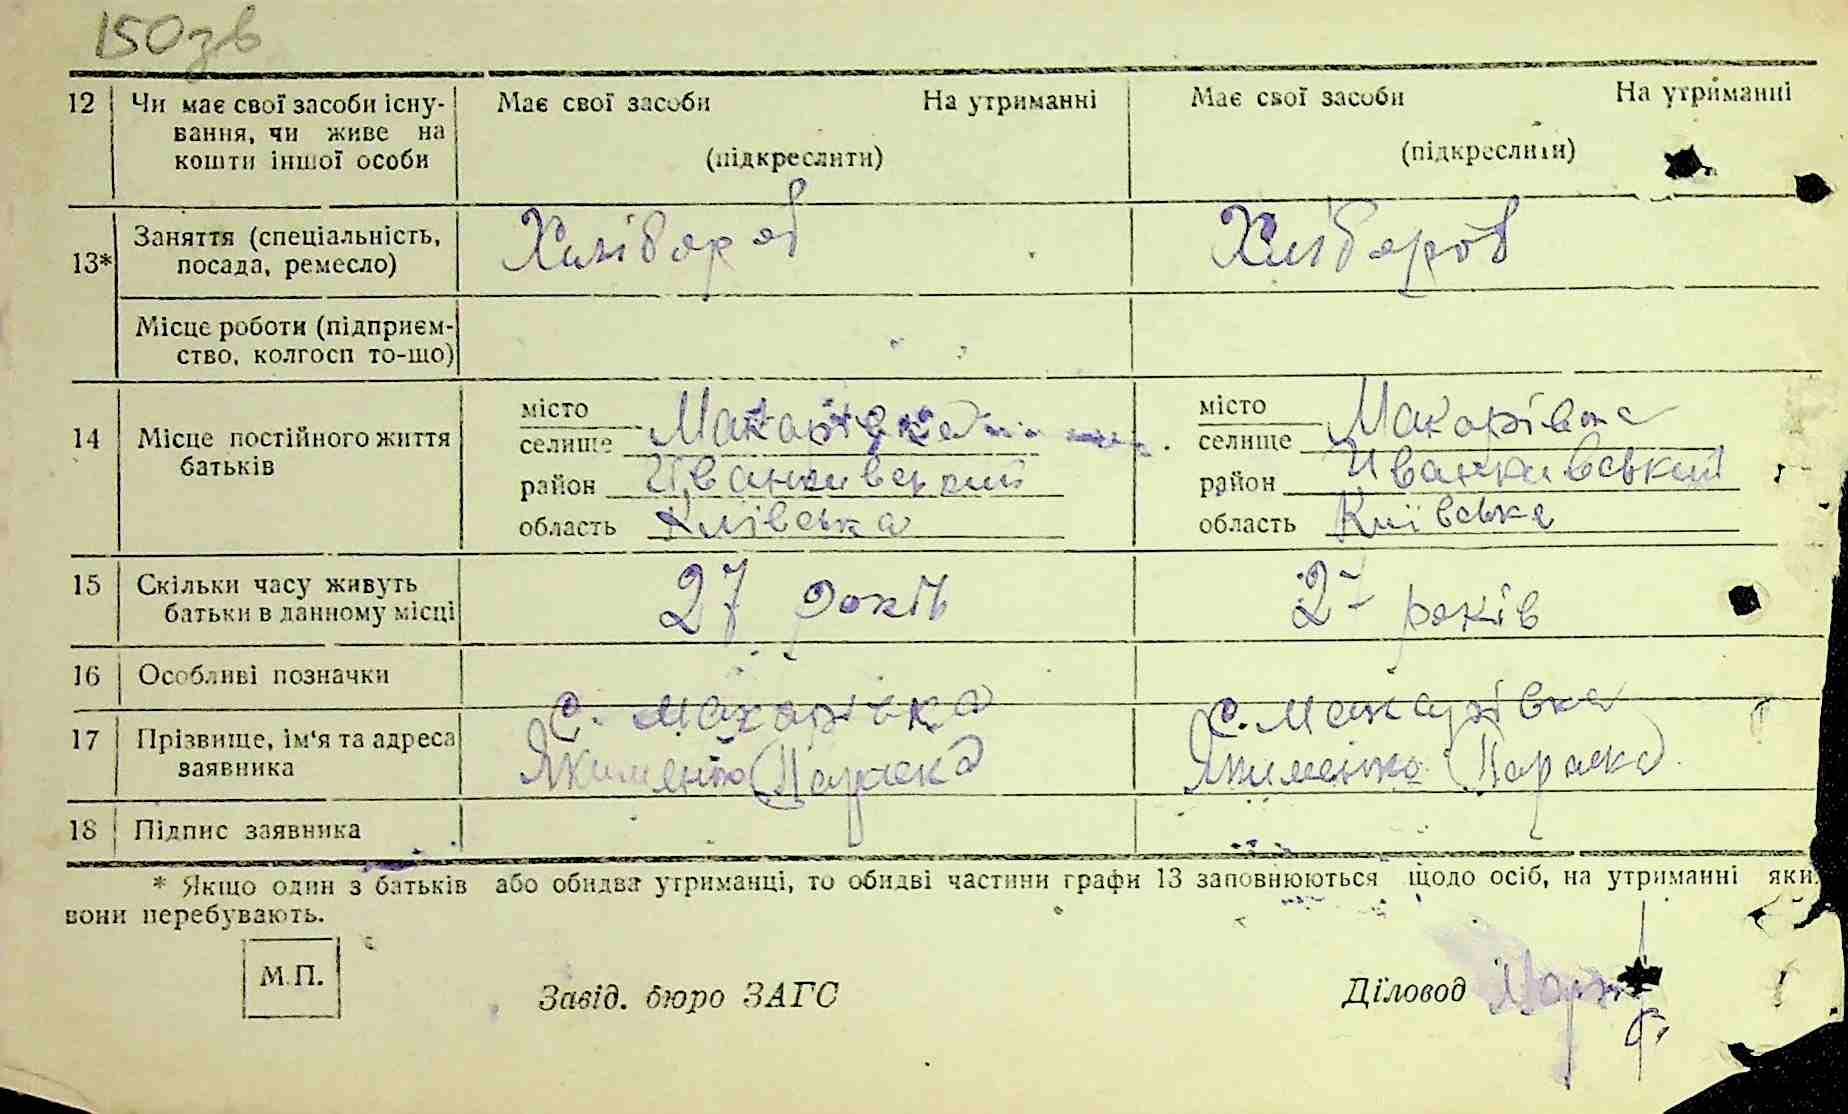 150зв
12 Чи має свої засоби існу- Має свої засоби На утриманні Має свої засоби На утриманні
вання, чи живе на
кошти іншої особи (підкреслити) (підкреслити)
13* Заняття (спеціальність, Хлібороб Хлібороб
посада, ремесло)
Місце роботи (підприєм-
ство, колгосп то-що)
14 Місце постійного життя місто Макарівка місто Макарівка
батьків селище селище
район Иванкивський район Иванкивський
область Київська область Київська
15 Скільки часу живуть 27 років 27 років
батьки в данному місці
16 Особливі позначки
с. Макарівка с. Макарівка
17 Прізвище, ім'я та адреса Якименко Параска Якименко Параска
заявника
18 Підпис заявника
* Якщо один з батьків або обидва утриманці, то обидві частини графи 13 заповнюються щодо осіб, на утриманні яки
вони перебувають.
М.П. Завід. бюро ЗАГС Діловод